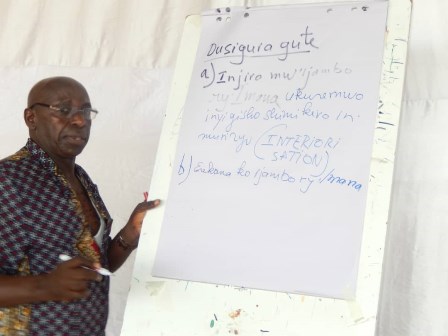 Dusigura gute
a) Injira mu ijambo
ry'Imana ukuremwo
inyigisho shimikiro in
muhinyu (INTERIORI
SATION)
b) ko ijambo ry'Imana